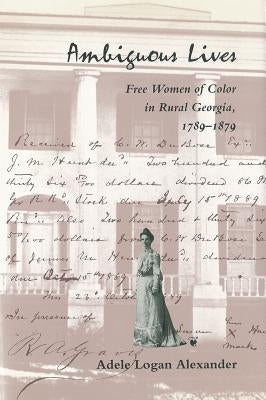 Ambiguous Lives
Free Women of Color
in Rural Georgia,
1789–1879
Received of C. W. DuBose Ex.
J. M. Hunt dec'd Two hundred and
thirty six 50/100 dollars dividend 86
Ga R R Stock due July 15th 1889
Also Two hundred & thirty six
50/100 two dollars from C. W. DuBose Ex
of James M. Hunt dec'd dividend
due Oct 15th 1889
this 23rd Octo 1889
In presence of
R. A. Graves
Susan Hunt
mark
Adele Logan Alexander